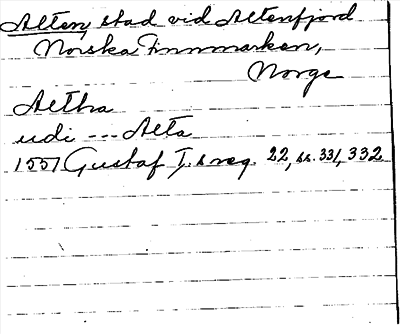 Alten, stad vid Altenfjord
Norska Finnmarken,
Norge
Altha
udi --- Alta
1551 Gustaf I.s reg. 22, ss. 331, 332